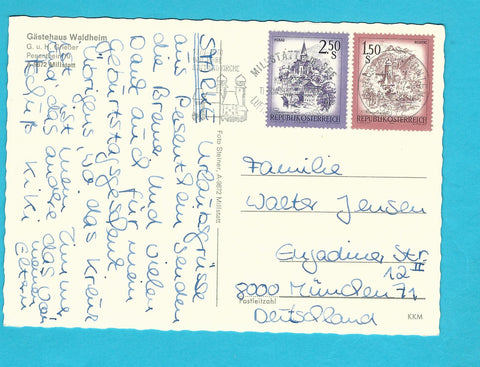 Gästehaus Waldheim
G. u. H. Grießer
A-9872 Millstatt
STARKE Urlaubsgrüsse
aus Pesenthein senden
die Braven und vielen
Dank auch für mein
Geburtstagsgeschenk
Übrigens, wo das Kreuz
ist mein Zimmer
und das andere das von
meinen Eltern
Kiki
Foto Steiner, A-9872 Millstatt
MILLSTATT
2.50 S
REPUBLIK ÖSTERREICH
1.50 S
REPUBLIK ÖSTERREICH
Familie
Walter Jensen
Engadiner Str.
12 II
8000 München 71
Postleitzahl
Deutschland
KKM